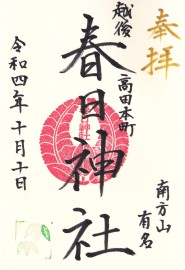 奉拝
越後
高田本町
春日神社
南方山
有名
令和四年十月十日